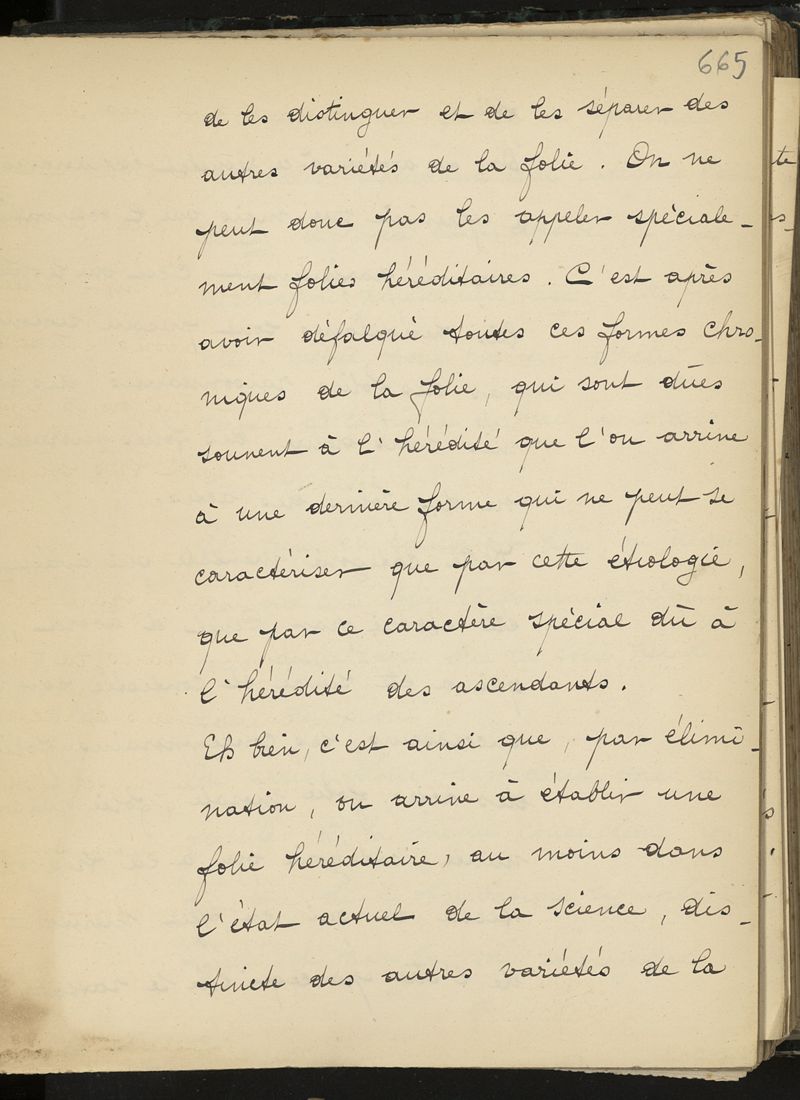 665
de les distinguer et de les séparer des
autres variétés de la folie. On ne
peut donc pas les appeler spéciale-
ment folies héréditaires. C'est après
avoir défalqué toutes ces formes chro-
niques de la folie, qui sont dûes
souvent à l'hérédité que l'on arrive
à une dernière forme qui ne peut se
caractériser que par cette étiologie,
que par ce caractère spécial dû à
l'hérédité des ascendants.
Eh bien, c'est ainsi que, par élimi-
nation, on arrive à établir une
folie héréditaire, au moins dans
l'état actuel de la science, dis-
tincte des autres variétés de la